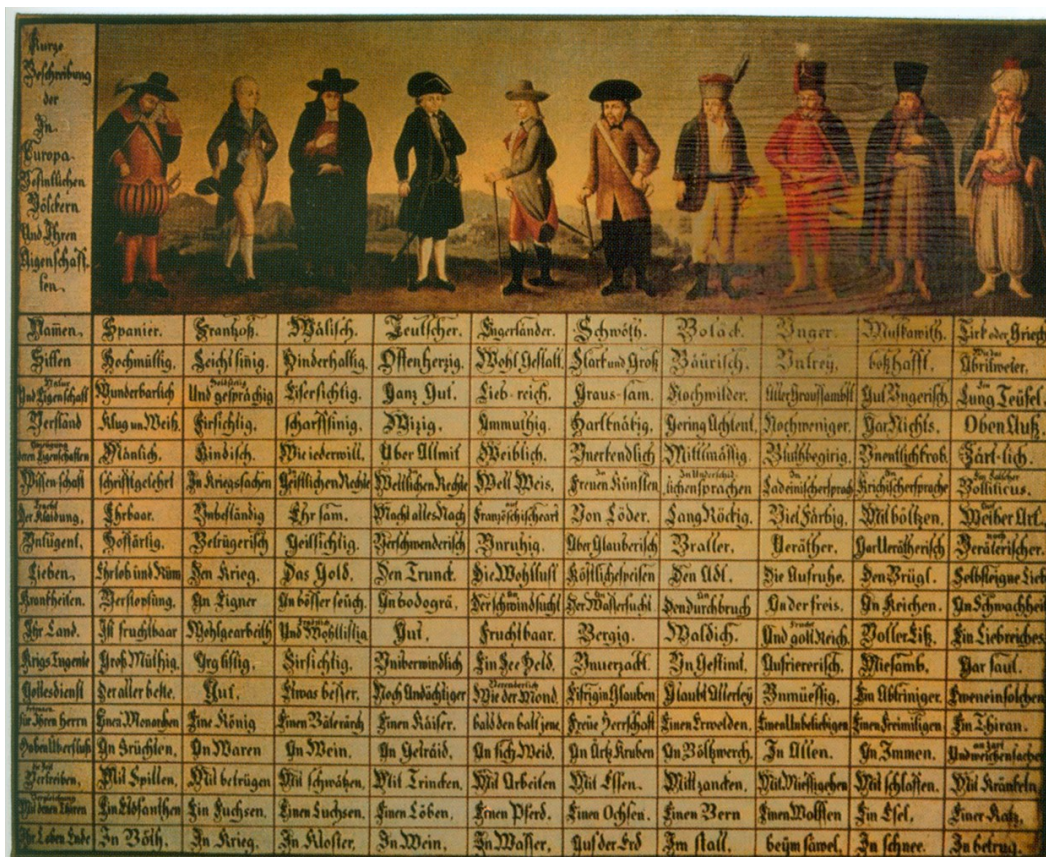 Kurze
Beschreibung
der
In
Europa-
Befintlichen
Völckern
Und Ihren
Aigenschaff,
ten,
Namen, Spanier. Frantzoß. Wälisch. Teutscher. Engerländer. Schwöth. Boläck. Unger. Muskawith. Tirk oder Griech
Sitten Hochmüttig, Leicht sinig, Hinderhaltig, Offenherzig, Wohl Gestalt, Stark und Groß Bäurisch, Untrey, boßhafft, Wie das Abrilweter,
Natur Und Eigenschaft Wunderbarlich Und gesprächig Eifersichtig, Ganz Gut, Lieb-reich, Graus-sam, Nochwilder, Aller Graussambst, Gut Ungerisch, Lung Teüfel.
Verstand Klug un Weiß, Firsichtig, scharffsinig, Wizig, Ammuthig, Hartknäbig, Gering Achtent, Nochweniger, Gar Nichts, Oben Auß,
Männlich, Kindisch, Wie iederwill, Über Allmit Weiblich, Unerkendlich Mittlmäsig, Bluthbegirig, Unentlichkrob, Zärt-lich.
Wissenschaft schrifftgelehrt In Kriegssachen Geistlichen Rechte Weltlichen Rechte Welt Weis, In Freuen Künsten In Lateinischersprach In Krichischersprache In Falscher Bolliticus.
Der Klaidung, Ehrbaar, Unbeständig Ehr sam, Macht alles Nach auf Französcheart Von Löder, Lang Röckig, Viel Färbig, Mit böltzen, Auf Weiber Art.
Untugent, Hoffärtig, Betrügerisch Geilsichtig, Verschwenderisch Unruhig, Über Glauberisch Braller, Veräther, Gar Verätherisch noch Veräterischer.
Lieben, Ehrlob und Rüm Den Krieg, Das Gold, Den Trunck, Die Wohllust Köstlichespeisen Den Adl, Die Aufruhe, Den Brügl, Selbsteigne Lieb
Krankheiten, Verstopfung, An Eigner An bösser seüch, An bodogrä, Der schwindsucht Der Wassersucht Den durchbruch An der freis, An Keichen, An Schwachheit
Ihr Land, Ist fruchtbaar Wohlgearbeith Und Wohllistig Gut, Fruchtbaar, Bergig, Waldich, Frucht Und goltReich, Voller Eiß, Ein Liebreiches
Krigs Tugente Groß Müthig, Arg listig, Firsichtig, Uniberwindlich Ein See Held, Unverzackt, Un Gestimt, Aufriererisch, Miesamb, Gar faul,
Gottesdienst Der aller beste, Gut, Etwas besser, Noch Andächtiger Wie der Mond, Eifrig in Glauben Glaubt Allerley Unmüessig, Ein Abtriniger, Eweneinsolchen
für Ihren herrn Einen Monarchen Eine König Einen Bäterärch Einen Kaiser, bald den balt jene, Freüe Herrschaft Einen Erwelden, Einen Unbeliebigen Einen Freimiligen Ein Thiran,
Haben Überfluß An Früchten, An Waren An Wein, An Getraid, An fich Weid, An Ärtz Kruben An Böltzwerch, In Allen, An Immen,
Die Zeit Vertreiben, Mit Spillen, Mit betrügen Mit schwätzen, Mit Trincken, Mit Arbeiten Mit Essen, Mitt zancken, Mit Miessigehen Mit schlaffen, Mit Kränkeln
Vergleichung Mit denen Thiren Ein Elofanthen Ein Fuchsen, Einen Luchsen, Einen Löben, Einen Pferd, Einen Ochsen, Einen Bern Einen Wolffen Ein Esel, Einer Katz,
Ihr Leben Ende In Böth, In Krieg, In Kloster, In Wein, In Wasser, Auf der Erd Im stall, beym säwel, In schnee. In betrug.